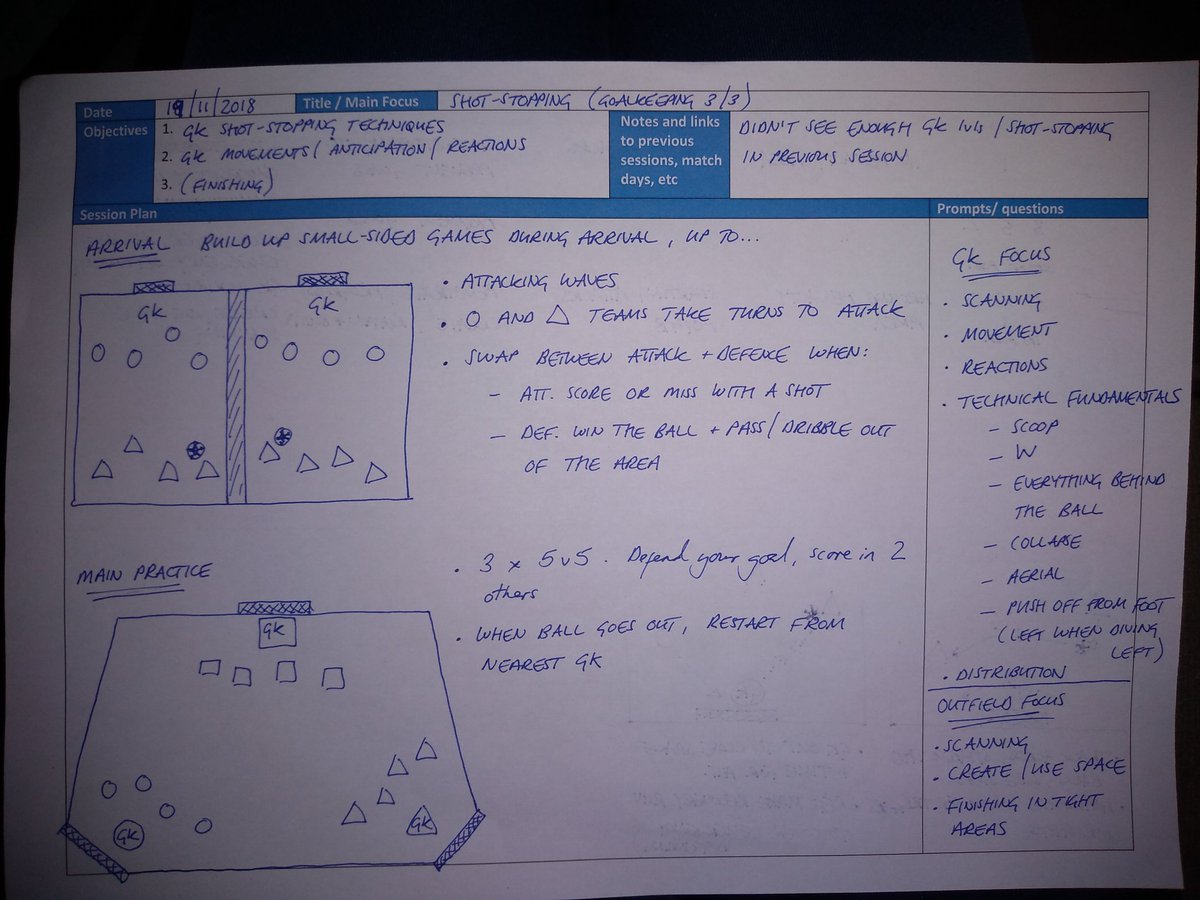 Date
19/11/2018
Title / Main Focus
SHOT-STOPPING (GOALKEEPING 3/3)
Objectives
1. GK SHOT-STOPPING TECHNIQUES
2. GK MOVEMENTS / ANTICIPATION / REACTIONS
3. (FINISHING)
Notes and links
to previous
sessions, match
days, etc
DIDN'T SEE ENOUGH GK 1v1s / SHOT-STOPPING
IN PREVIOUS SESSION
Session Plan
ARRIVAL BUILD UP SMALL-SIDED GAMES DURING ARRIVAL, UP TO...
GK
GK
• ATTACKING WAVES
• O AND △ TEAMS TAKE TURNS TO ATTACK
• SWAP BETWEEN ATTACK + DEFENCE WHEN:
- ATT. SCORE OR MISS WITH A SHOT
- DEF. WIN THE BALL + PASS/DRIBBLE OUT
OF THE AREA
MAIN PRACTICE
GK
GK
GK
• 3 x 5v5. Defend your goal, score in 2
others
• WHEN BALL GOES OUT, RESTART FROM
NEAREST GK
Prompts/ questions
GK FOCUS
• SCANNING
• MOVEMENT
• REACTIONS
• TECHNICAL FUNDAMENTALS
- SCOOP
- W
- EVERYTHING BEHIND
THE BALL
- COLLAPSE
- AERIAL
- PUSH OFF FROM FOOT
(LEFT WHEN DIVING
LEFT)
• DISTRIBUTION
OUTFIELD FOCUS
• SCANNING
• CREATE / USE SPACE
• FINISHING IN TIGHT
AREAS